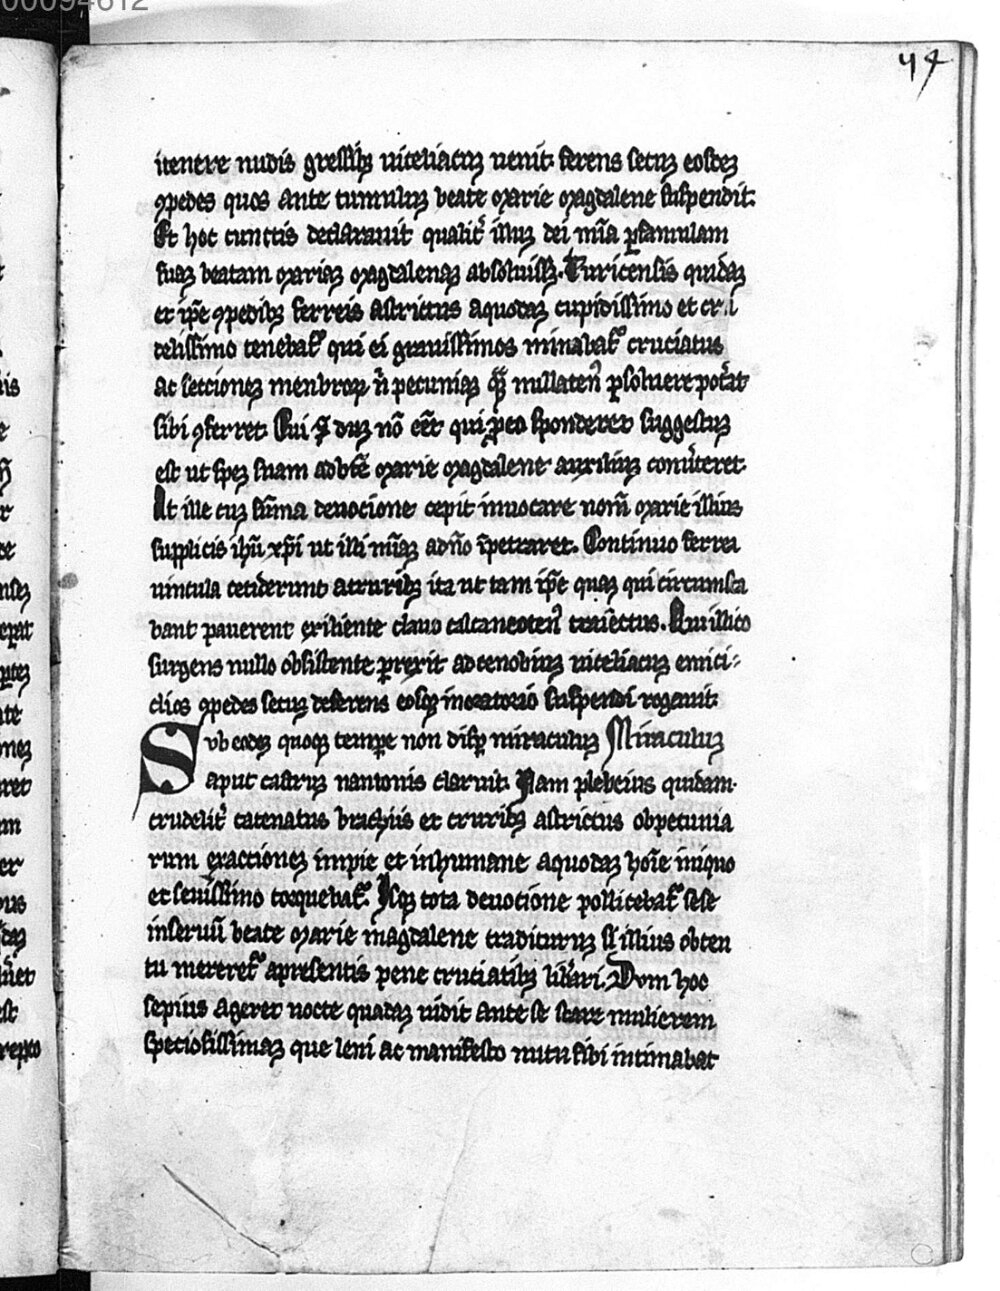 00094612
49
itenere nudis gressibꝫ uiceliacuꝫ uenit ferens secuꝫ eosdeꝫ
ꝯpedes quos ante tumuluꝫ beate marie magdalene suspendit.
Et hoc cunctis declarauit qualit᷑ illuꝫ dei mīa ꝑ famulam
suaꝫ beatam mariaꝫ magdalenaꝫ absoluissꝫ. Turicensis quidaꝫ
et ip̄e ꝯpedibꝫ ferreis astrictus a quodaꝫ cupidissimo et cru
delissimo tenebat᷑ qui ei grauissimos minabat᷑ cruciatus
ac seccioneꝫ menbroꝝ n̄ pecuniaꝫ nullaten᷒ ꝑsoluere pot᷑at
sibi ꝯferret. Cui duꝫ nō eēt qui ꝓ eo sponderet suggestuꝫ
est ut speꝫ suam ad bt̄e marie magdalene auxiliuꝫ conu᷑teret.
At ille cuꝫ sūma deuocione cepit inuocare nom̄ marie illius
supplicis ih̄u xp̄i ut illi mīaꝫ ad dn̄o īpetraret. Continuo ferrea
uincula ceciderunt a cruribꝫ ita ut tam ip̄e quaꝫ qui circumsta
bant pauerent exiliente clauo calcaneoten᷒ traiectus. Qui illico
surgens nullo obsistente ꝑrexit ad cenobiuꝫ uiceliacuꝫ emici⸗
clios ꝯpedes secuꝫ deferens eosqꝫ in oratorio suspendi rogauit.
Sub eodeꝫ quoqꝫ tempore non disp̱ miraculuꝫ Miraculuꝫ
aput castruꝫ nantonis claruit. Nam plebeius quidam
crudelit᷑ catenatus brachiis et cruribꝫ astrictus ob pecunia
rum exaccioneꝫ impie et inhumane a quodaꝫ hoīe iniquo
et seuissimo torquebat᷑. Isqꝫ tota deuocione pollicebat᷑ sese
in seruiū beate marie magdalene tradituruꝫ si illius obten
tu mereret᷑ a presentis pene cruciatibꝫ lib᷑ari. Dvm hoc
sepius ageret nocte quadaꝫ uidit ante se stare mulierem
speciosissimaꝫ que leni ac manifesto nutu sibi intimabat